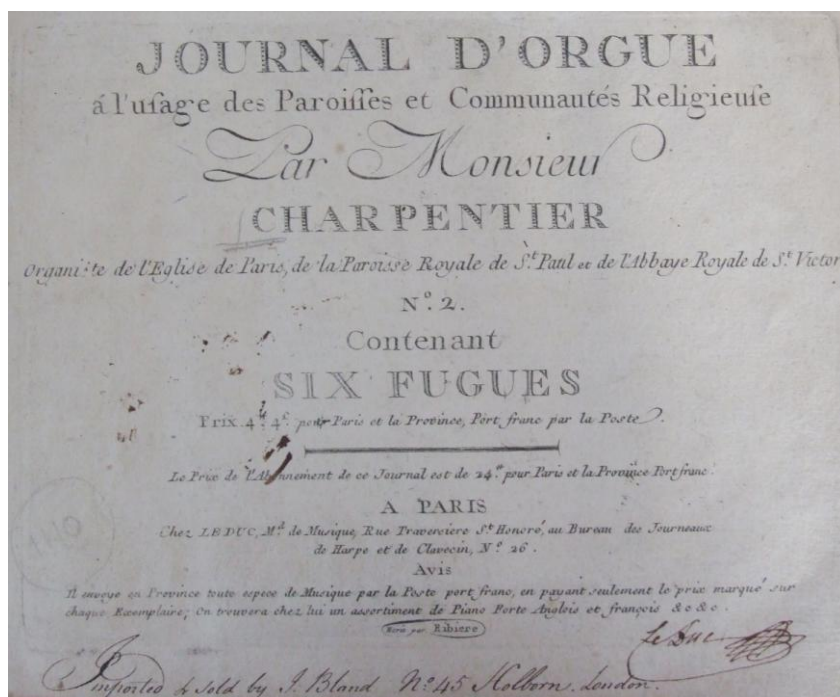 JOURNAL D'ORGUE
á l'uſage des Paroiſſes et Communautés Religieuſe
Par Monsieur
CHARPENTIER
Organiste de l'Eglise de Paris, de la Paroisse Royale de S.t Paul et de l'Abbaye Royale de S.t Victor
N.º 2.
Contenant
SIX FUGUES
Prix 4.tt 4.ſ pour Paris et la Province, Port franc par la Poste.
Le Prix de l'Abonnement de ce Journal est de 24.tt pour Paris et la Province Port franc.
A PARIS
Chez LEDUC, M.d de Musique, Rue Traversiere S.t Honoré, au Bureau des Journeaux
de Harpe et de Clavecin, N.º 26.
Avis
Il envoye en Province toute espece de Musique par la Poste port franc, en payant seulement le prix marqué sur
chaque Exemplaire; On trouvera chez lui un assortiment de Piano Forte Anglois et françois &c &c.
Ecrit par Ribiere
Le Duc
Imported & Sold by J. Bland Nº 45 Holborn. London.
140